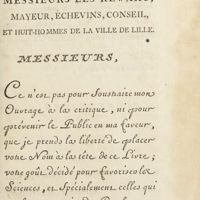 MESSIEURS LES REWART,
MAYEUR, ÉCHEVINS, CONSEIL,
ET HUIT-HOMMES DE LA VILLE DE LILLE.
MESSIEURS,
Ce n'est pas pour soustraire mon
Ouvrage à la critique, ni pour
prévenir le Public en ma faveur,
que je prends la liberté de placer
votre Nom à la tête de ce Livre ;
votre goût décidé pour favoriser les
Sciences, et spécialement celles qui